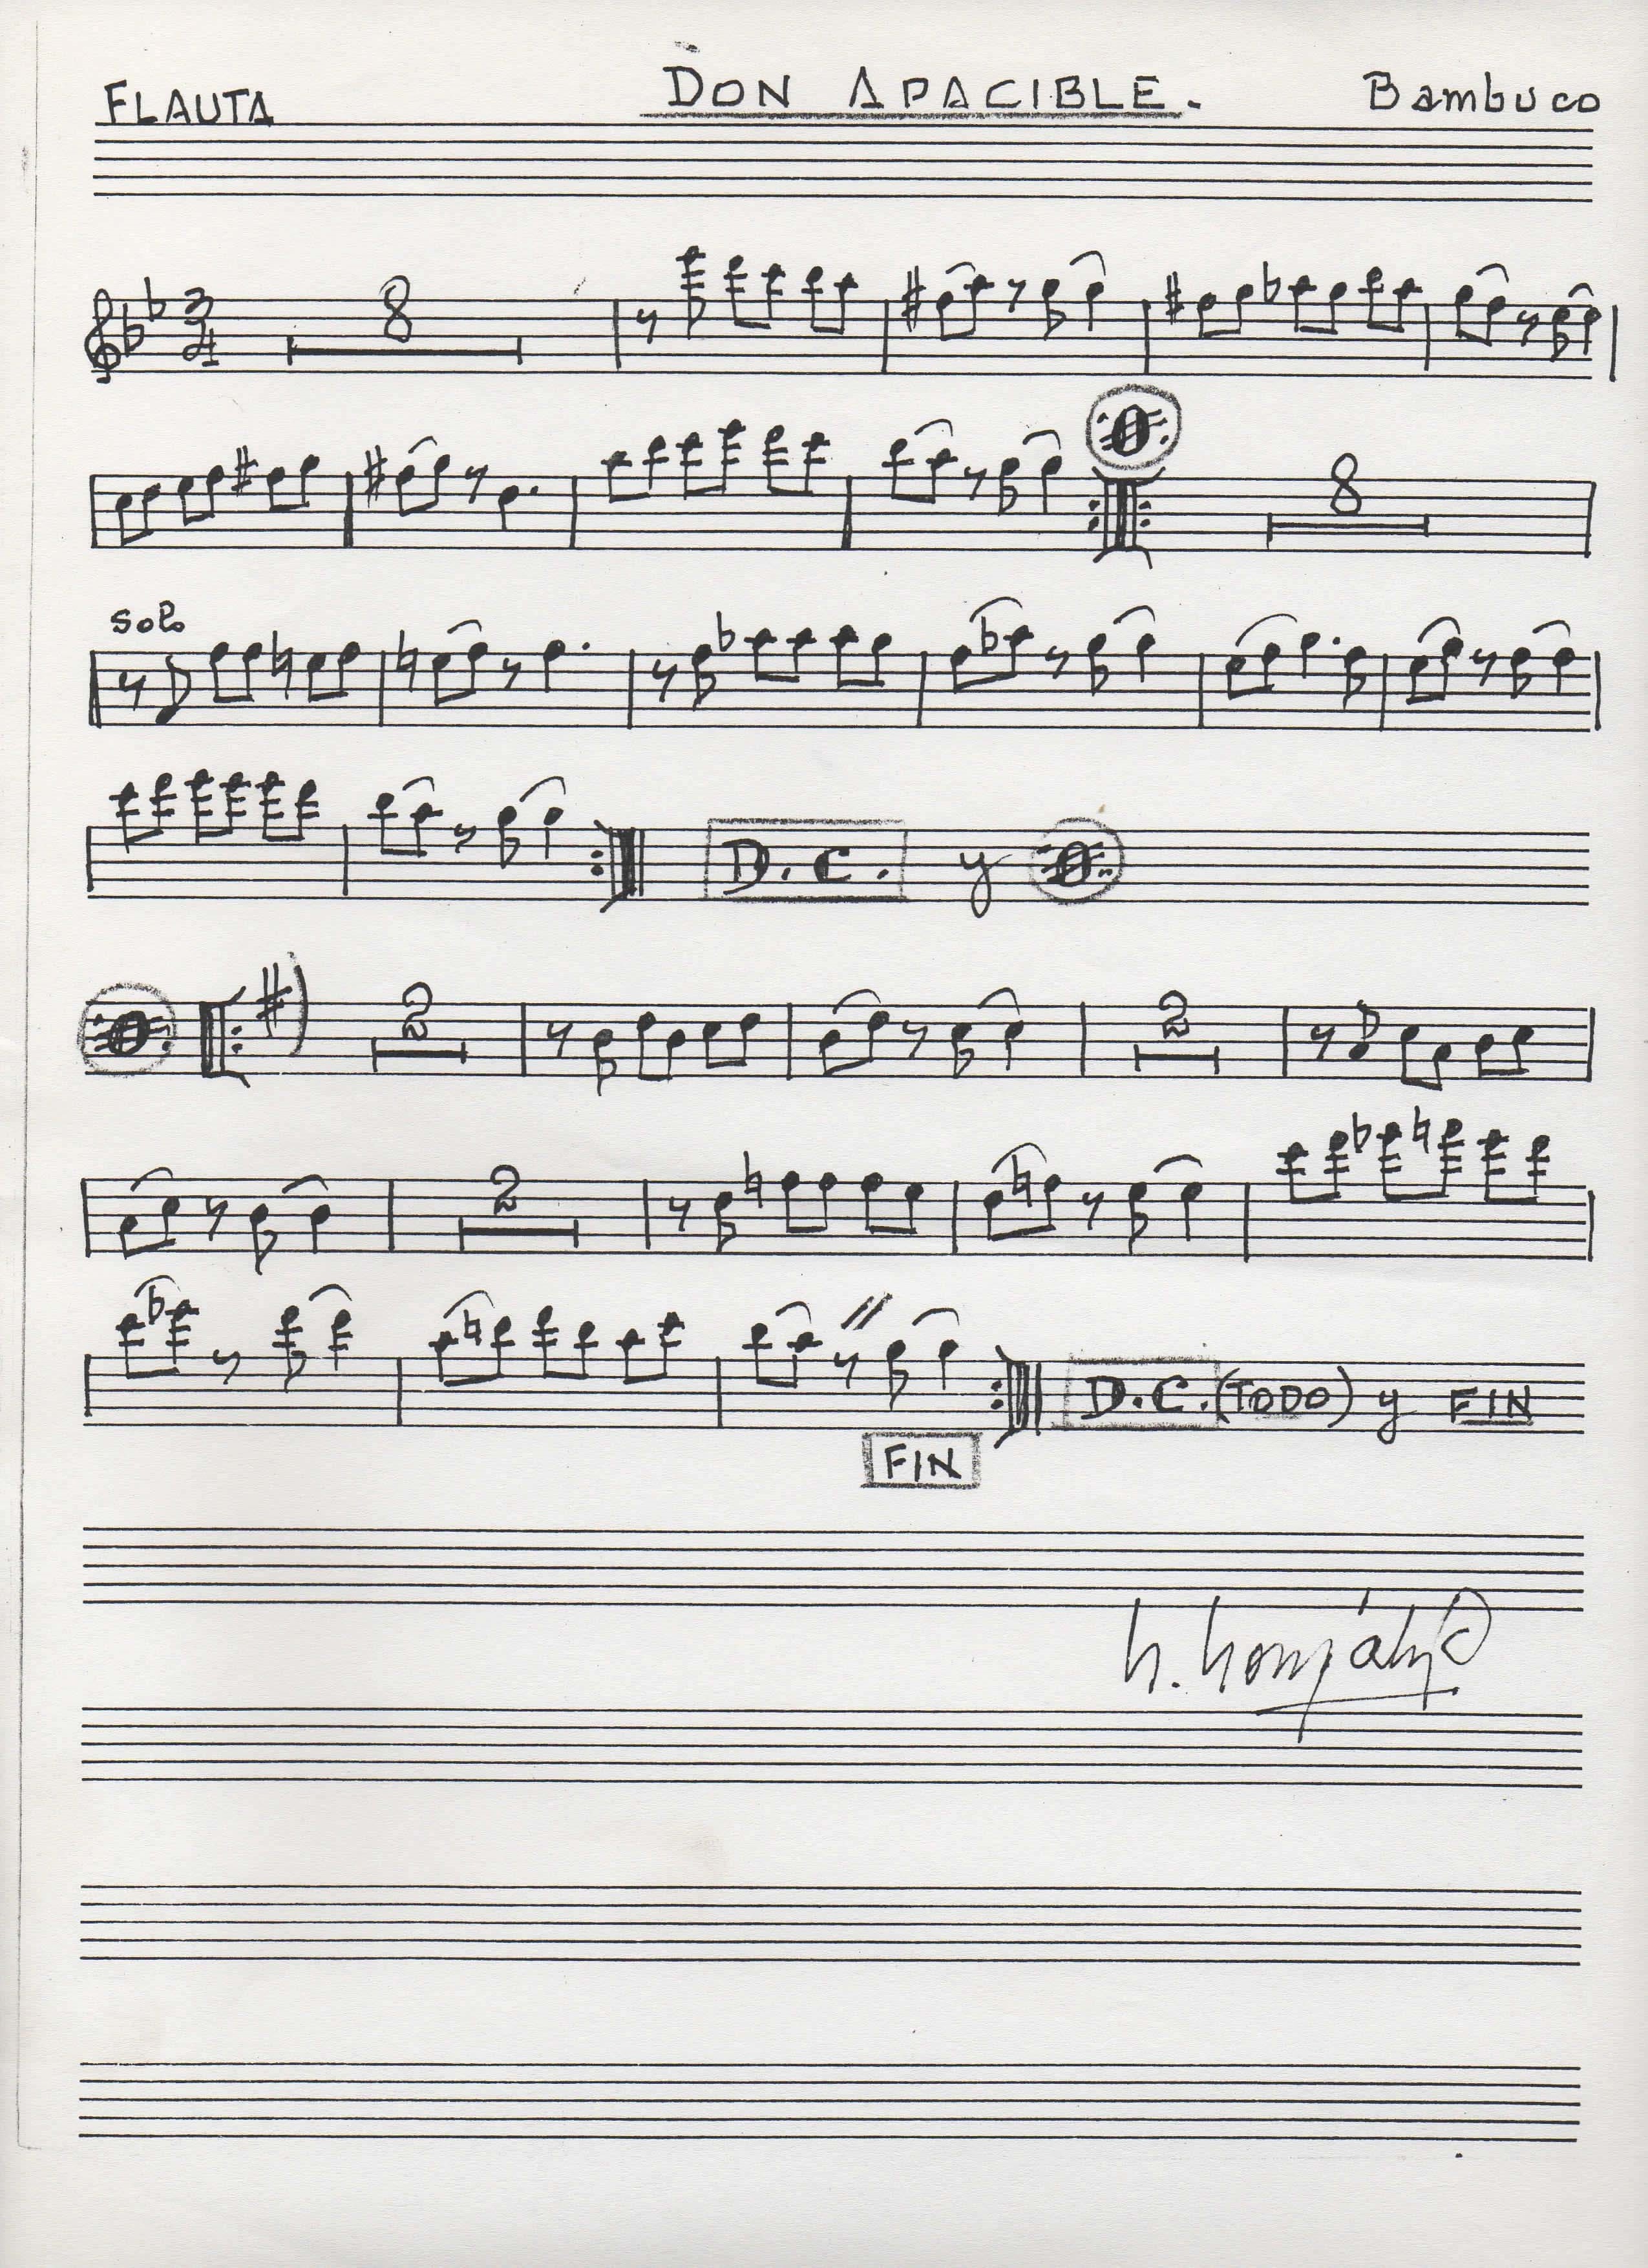 FLAUTA DON APACIBLE. Bambuco
3
4
8
8
Solo
D.C. y
2
2
2
D.C. (TODO) y FIN
FIN